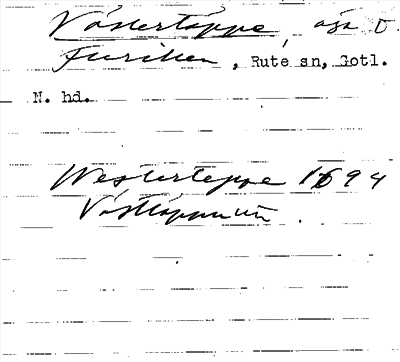 Västertäppe, ägs t.
Furillen, Rute sn, Gotl.
N. hd.
Westerteppe 1694
Västtäppan